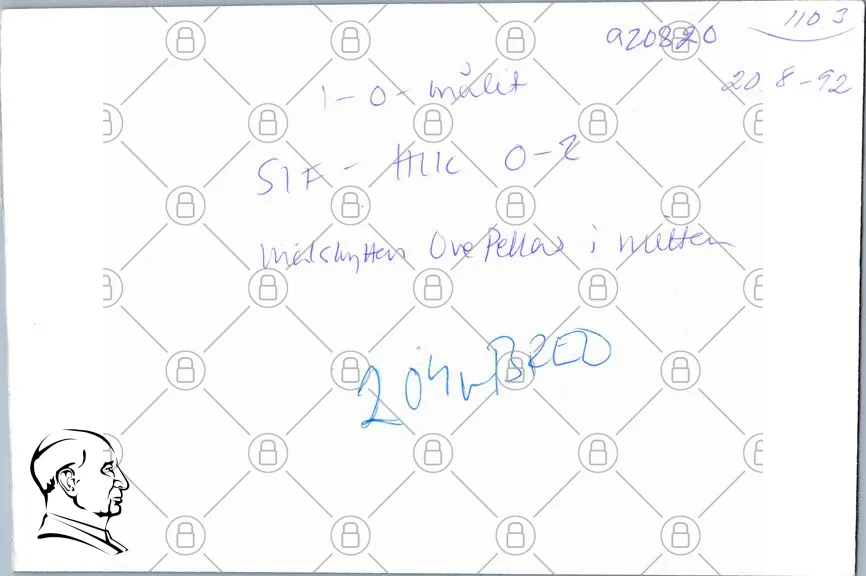 110 3
920820
20.8-92
1-0-målet
SIF - HIK 0-2
målskytten Ove Pellas i mitten
204 BRED